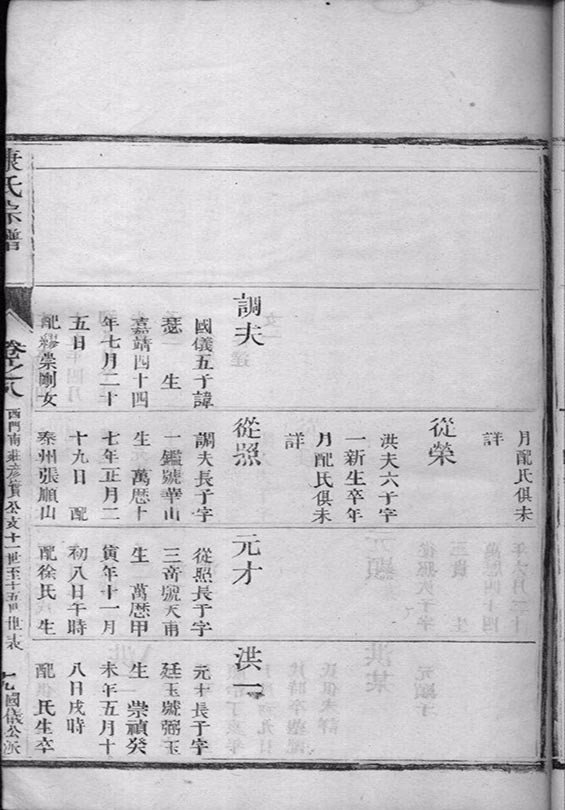 月配氏俱未
詳
從榮
洪夫六子字
一新生卒年
月配氏俱未
詳
調夫
國儀五子諱
瑟 生
嘉靖四十四
年七月二十
五日
配繆崇剛女
從照
調夫長子字
一鑑號華山
生 萬曆十
七年正月二
十九日 配
泰州張願山
元才
從照長子字
三奇號天甫
生 萬曆甲
寅年十一月
初八日午時
配徐氏生
洪一
元才長子字
廷玉號弼玉
生 崇禎癸
未年五月十
八日戌時
配 氏生卒
康氏宗譜
卷之八
西門南莊彥賓公支十一世至十五世世表
九
國儀公派